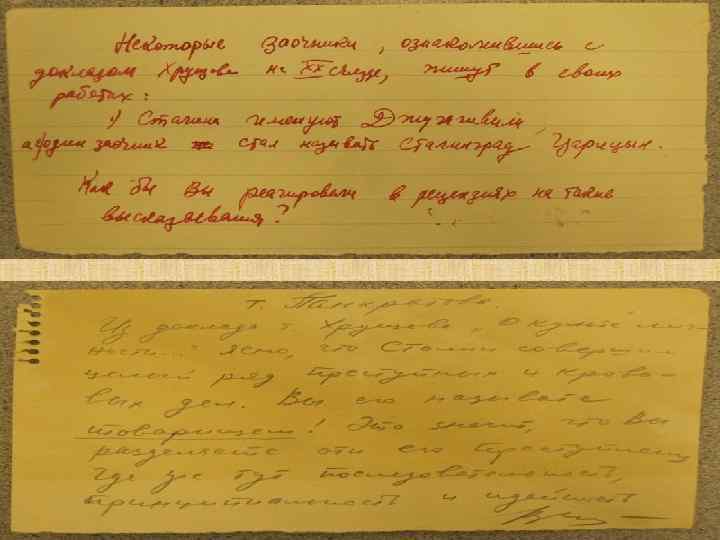 Некоторые заочники, ознакомившись с
докладом Хрущева на XX съезде, пишут в своих
работах:
1) Сталина именуют Джугашвили,
а один заочник стал называть Сталинград Царицын.
Как бы Вы реагировали в рецензиях на такие
высказывания?
т. Панкратова.
Из доклада т. Хрущева „О культе лич
ности..." ясно, что Сталин совершил
целый ряд преступных и крова-
вых дел. Вы его называете
товарищем! Это значит, что Вы
разделяете эти его преступления
Где же тут последовательность,
принципиальность и идейность